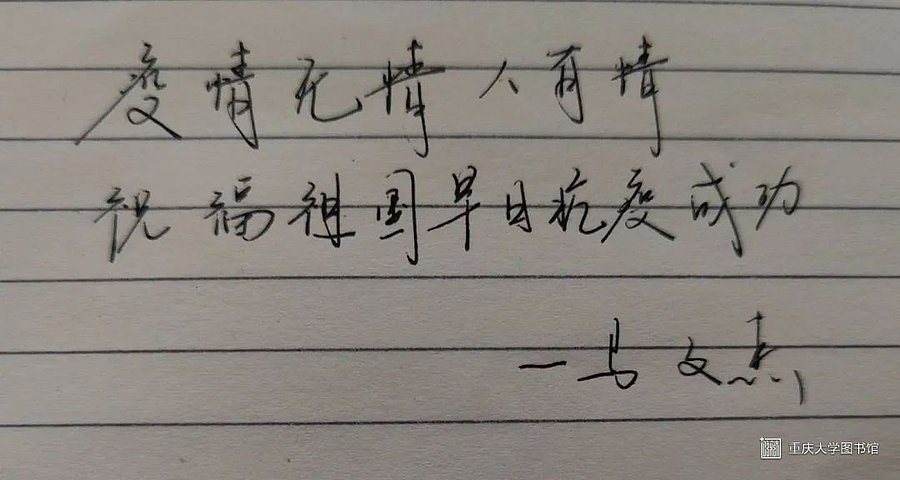 疫情无情人有情
祝福祖国早日抗疫成功
—马文杰
重庆大学图书馆